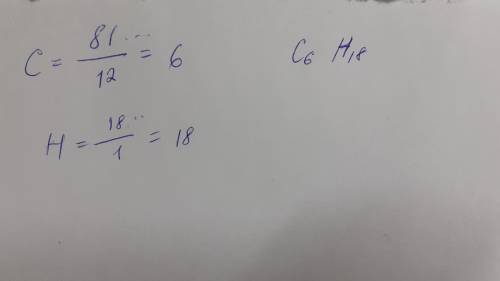 C = 81... / 12 = 6
C₆ H₁₈
H = 18... / 1 = 18